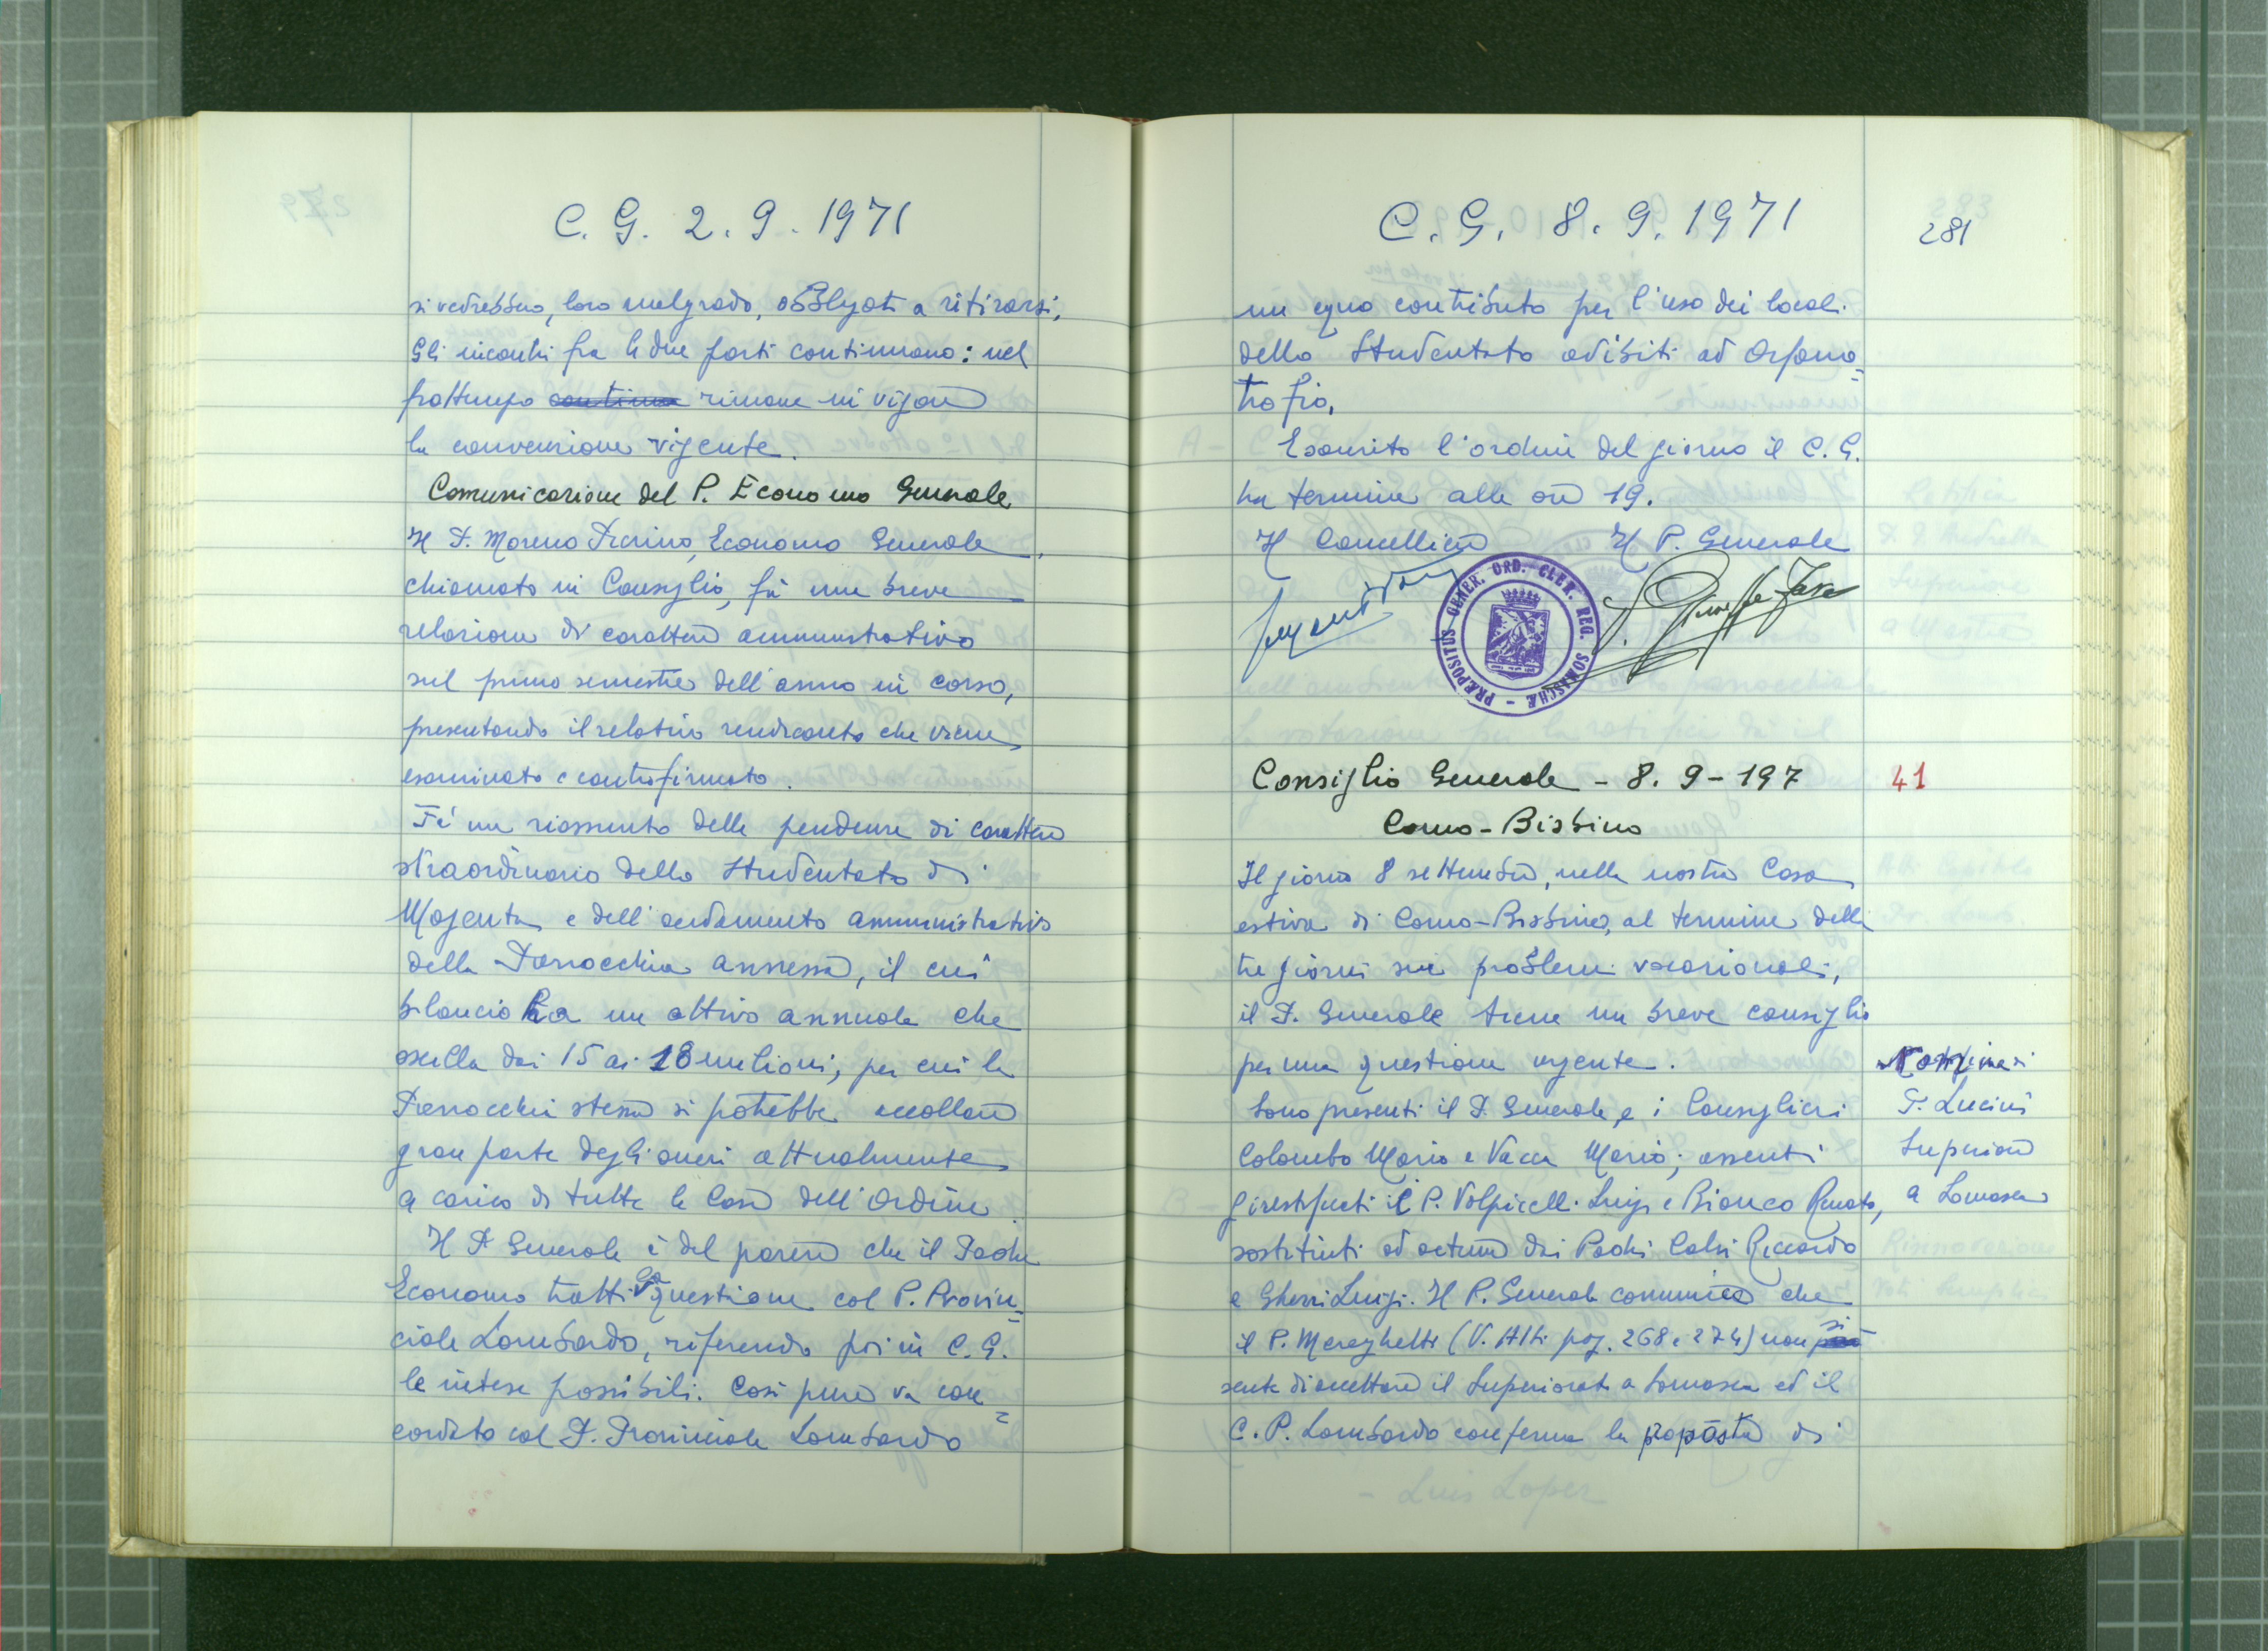 C. G. 2. 9. 1971
si vedrebbero, loro malgrado, obbligati a ritirarsi.
Gli incontri fra le due parti continuano: nel
frattempo continua rimane in vigore
la convenzione vigente.
Comunicazione del P. Economo Generale
Il P. Moreno Pierino, Economo Generale,
chiamato in Consiglio, fa una breve
relazione di carattere amministrativo
sul primo semestre dell'anno in corso,
presentando il relativo rendiconto che viene
esaminato e controfirmato.
Fa un riassunto delle pendenze di carattere
straordinario dello Studentato di
Magenta e dell'andamento amministrativo
della Parrocchia annessa, il cui
bilancio ha un attivo annuale che
oscilla dai 15 ai 18 milioni, per cui la
Parrocchia stessa si potrebbe accollare
gran parte degli oneri attualmente
a carico di tutte le Case dell'Ordine.
Il P. Generale è del parere che il Padre
Economo tratti la questione col P. Provin=
ciale Lombardo, riferendo poi in C. G.
le intese possibili. Così pure va con=
cordato col P. Provinciale Lombardo
C. G. 8. 9. 1971
281
un equo contributo per l'uso dei locali
dello Studentato adibiti ad Orfano=
trofio.
Esaurito l'ordine del giorno il C. G.
ha termine alle ore 19.
Il Cancelliere Il P. Generale
P. Giuseppe Fava
PRÆPOSITUS GENER. ORD. CLER. REG. SOMASCHÆ
Consiglio Generale - 8. 9 - 197
41
Como - Bisbino
Il giorno 8 settembre, nella nostra Casa
estiva di Como-Bisbino, al termine della
tre giorni sui problemi vocazionali,
il P. Generale tiene un breve consiglio
per una questione urgente.
Sono presenti il P. Generale, e i Consiglieri
Colombo Mario e Vacca Mario; assenti
giustificati il P. Volpicelli Luigi e Bianco Renato,
sostituiti ad actum dai Padri Calvi Riccardo
e Gherri Luigi. Il P. Generale comunica che
il P. Mereghetti (V. Atti pag. 268 e 274) non si
sente di accettare il Superiorato a Somasca ed il
C. P. Lombardo conferma la proposta di
Nomina di
P. Lucini
Superiore
a Somasca